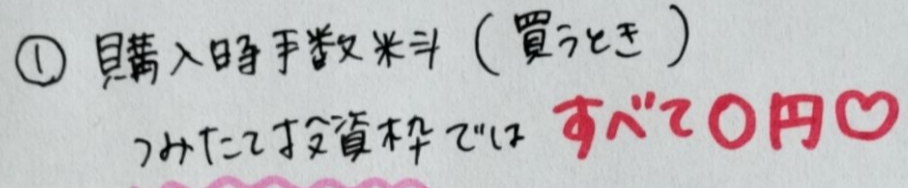 ① 購入時手数料(買うとき)
つみたて投資枠では すべて0円♡